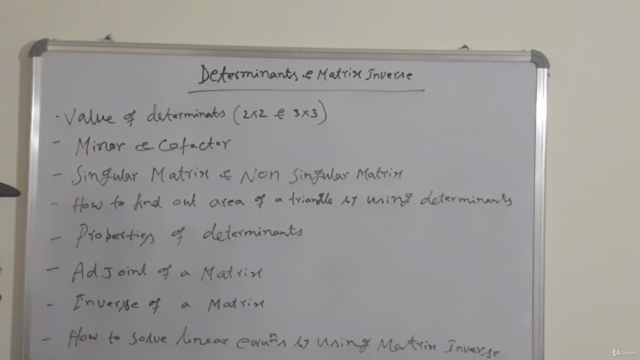 Determinants & Matrix Inverse
- Value of determinats (2×2 & 3×3)
- Minor & Cofactor
- Singular Matrix & Non Singular Matrix
- How to find out area of a triangle by using determinants
- Properties of determinants
- Adjoint of a Matrix
- Inverse of a Matrix
- How to solve linear equns by using Matrix Inverse